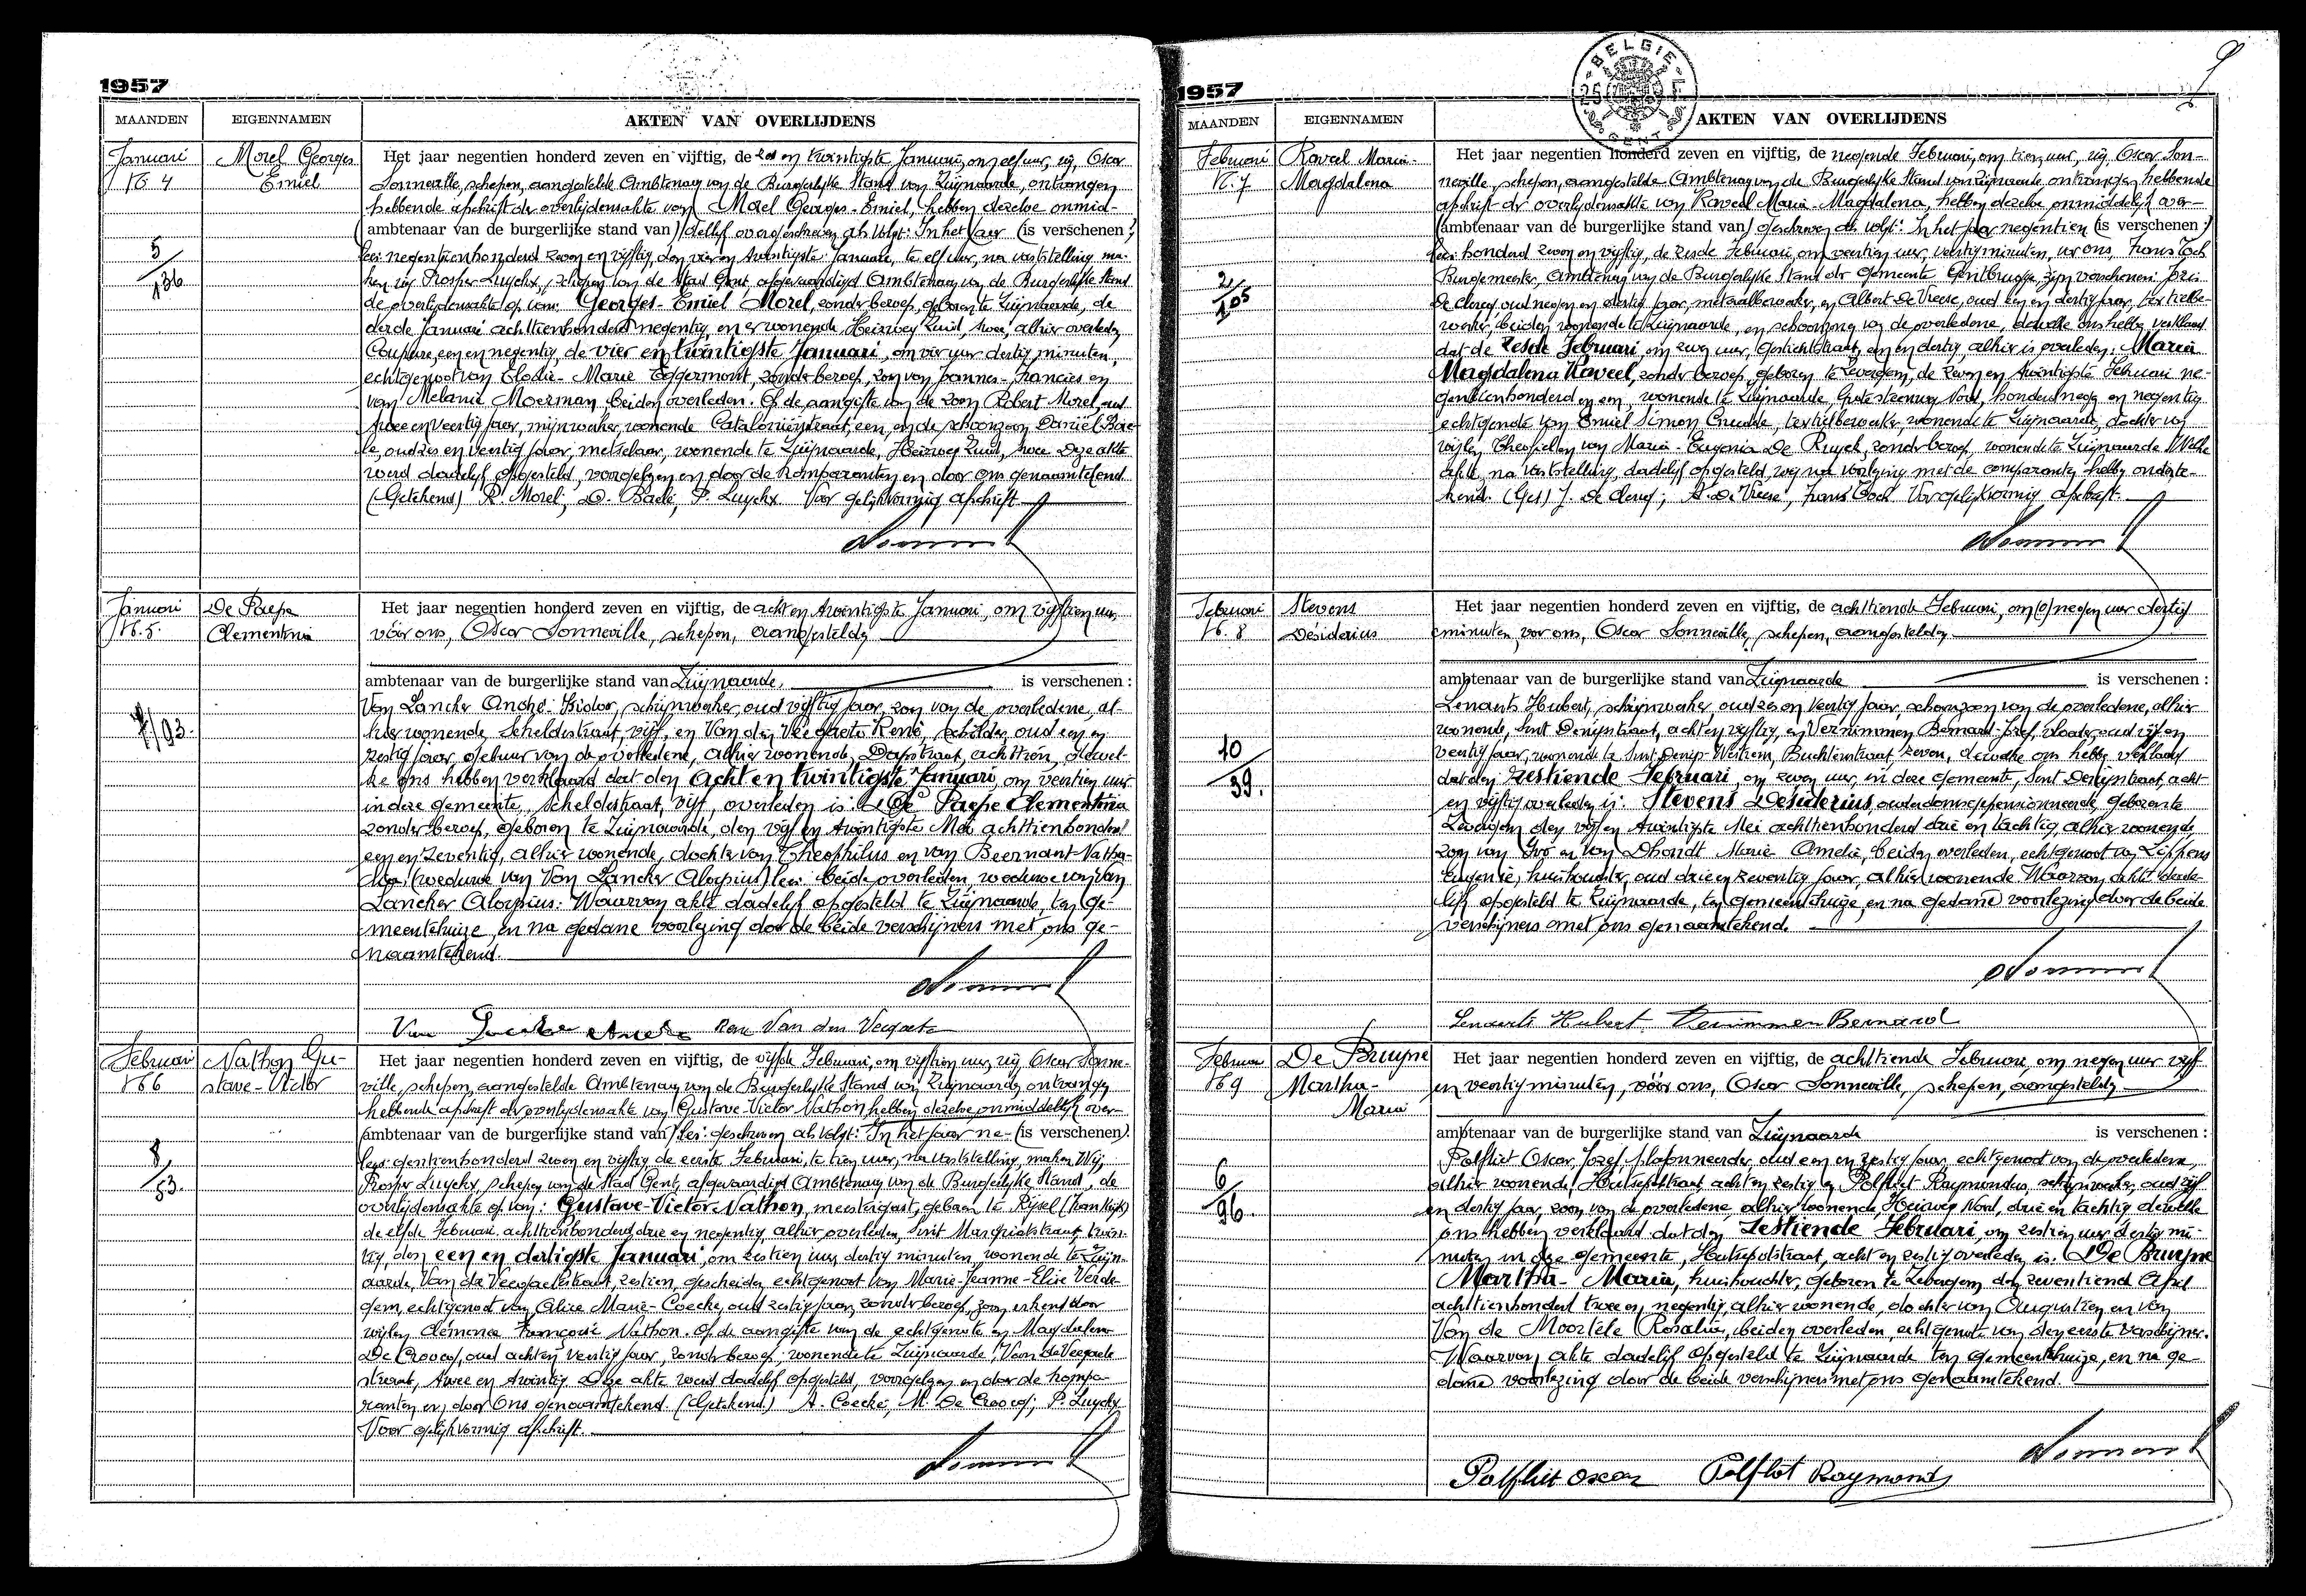 1957
MAANDEN
EIGENNAMEN
AKTEN VAN OVERLIJDENS
Januari
N6 4
Morel Georges
Emiel
5/136
Het jaar negentien honderd zeven en vijftig, de zes en twintigste Januari, om elf uur, wij, Oscar
Sonneville, schepen, aangestelde Ambtenaar van de Burgerlijke Stand van Zwijnaarde, ontvangen
hebbende afschrift der overlijdensakte van Morel Georges-Emiel, hebben dezelve onmid-
(ambtenaar van de burgerlijke stand van) dellijk overgeschreven als volgt: In het jaar (is verschenen:)
lees: negentienhonderd zeven en vijftig, den vier en twintigste Januari, te elf uur, na vaststelling ma-
ken wij Prosper Luyckx, schepen van de Stad Gent, afgevaardigd Ambtenaar van de Burgerlijke Stand
de overlijdensakte op van: Georges-Emiel Morel, zonder beroep, geboren te Zwijnaarde, de
derde Januari achttienhonderd negentig, en er wonende, Heirweg Zuid, twee, alhier overleden
Coupure, een en negentig, de vier en twintigste Januari, om vier uur dertig minuten,
echtgenoot van Elodie-Marie Eggermont, zonder beroep, zoon van Joannes-Francies en
van Melanie Moerman, beiden overleden. Op de aangifte van de zoon Robert Morel, oud
twee en veertig jaar, mijnwerker, wonende Cataloniëstraat, een, en de schoonzoon Daniël Bae-
le, oud zes en veertig jaar, metselaar, wonende te Zwijnaarde, Heirweg Zuid, twee. Deze akte
werd dadelijk opgesteld, voorgelezen en door de komparanten en door ons genaamtekend.
(Getekend) R. Morel; D. Baele; P. Luyckx. Voor gelijkvormig afschrift.
Januari
N6 5.
De Paepe
Clementina
7/93.
Het jaar negentien honderd zeven en vijftig, de acht en twintigste Januari, om vijftien uur,
vóór ons, Oscar Sonneville, schepen, aangestelde
ambtenaar van de burgerlijke stand van Zwijnaarde, is verschenen:
Van Lancker André-Isidor, schrijnwerker, oud vijftig jaar, zoon van de overledene, al-
hier wonende, Scheldestraat, vijf, en Van den Veegaete René, schilder, oud een en
zestig jaar, gebuur van de overledene, alhier wonende, Dorpstraat, achttien, dewel-
ke ons hebben verklaard dat den acht en twintigste Januari, om veertien uur
in deze gemeente, Scheldestraat, vijf, overleden is: De Paepe Clementina
zonder beroep, geboren te Zwijnaarde, den vijf en twintigste Mei achttienhonderd
een en zeventig, alhier wonende, dochter van Theophilus en van Beernaert Natha-
lia, (weduwe van Van Lancker Aloysius) lees: beide overleden, weduwe van Van
Lancker Aloysius. Waarvan akte dadelijk opgesteld te Zwijnaarde, ten ge-
meentehuize, en na gedane voorlezing door de beide verschijners met ons ge-
naamtekend.
Van Lancker André Rene Van den Veegaete
Februari
N6 6
Nathon Gu-
stave-Victor
8/53.
Het jaar negentien honderd zeven en vijftig, de vijfde Februari, om vijftien uur, wij Oscar Sonne-
ville, schepen, aangestelde Ambtenaar van de Burgerlijke Stand van Zwijnaarde, ontvangen
hebbende afschrift der overlijdensakte van Gustave-Victor Nathon, hebben dezelve onmiddelijk over-
(ambtenaar van de burgerlijke stand van) lees: geschreven als volgt: In het jaar ne- (is verschenen).
lees: gentienhonderd zeven en vijftig, de eerste Februari, te tien uur, na vaststelling, maken Wij,
Prosper Luyckx, schepen van de Stad Gent, afgevaardigd Ambtenaar van de Burgerlijke Stand, de
overlijdensakte op van: Gustave-Victor Nathon, meestergast, geboren te Rijsel (Frankrijk)
de elfde Februari achttienhonderd drie en negentig, alhier overleden, Sint Margrietstraat, twin-
tig, den een en dertigste Januari, om zestien uur dertig minuten, wonende te Zwijn-
aarde, Van de Veegaetestraat, zestien, gescheiden echtgenoot van Marie-Jeanne-Elise Verde-
gem, echtgenoot van Alice Marie-Coecke, oud zestig jaar, zonder beroep, zoon erkend door
wijlen Clémence Françoise Nathon. Op de aangifte van de echtgenote en Magdalena
De Croocq, oud acht en veertig jaar, zonder beroep, wonende te Zwijnaarde, Van de Veegaete
straat, twee en twintig. Deze akte werd dadelijk opgesteld, voorgelezen en door de kompa-
ranten en door Ons genaamtekend. (Getekend.) A. Coecke; M. De Croocq; P. Luyckx
Voor gelijkvormig afschrift.
9
1957
BELGIE
GENT
MAANDEN
EIGENNAMEN
AKTEN VAN OVERLIJDENS
Februari
N6. 7
Raveel Maria-
Magdalena
2/105
Het jaar negentien honderd zeven en vijftig, de negende Februari, om tien uur, wij Oscar Son-
neville, schepen, aangestelde Ambtenaar van de Burgerlijke Stand van Zwijnaarde ontvangen hebbende
afschrift der overlijdensakte van Raveel Maria-Magdalena, hebben dezelve onmiddelijk over-
(ambtenaar van de burgerlijke stand van) geschreven als volgt: In het jaar negentien (is verschenen:)
lees: honderd zeven en vijftig, de zesde Februari, om veertien uur, veertig minuten, voor ons, Frans Toch
Burgemeester, Ambtenaar van de Burgerlijke Stand der Gemeente Gentbrugge, zijn verschenen:
De Clercq, oud negen en dertig jaar, metaalbewerker, en Albert De Vreese, oud een en dertig jaar, textielbe-
werker, beiden wonende te Zwijnaarde, en schoonzoons van de overledene, dewelke ons hebben verklaard
dat de zesde Februari, om zeven uur, Gestichtstraat, een en dertig, alhier is overleden: Maria
Magdalena Raveel, zonder beroep, geboren te Zevergem, de zeven en twintigste Februari ne-
gentienhonderd en een, wonende te Zwijnaarde, Grote steenweg Noord, honderd negen en negentig
echtgenote van Emiel Simon Crudde, textielbewerker, wonende te Zwijnaarde, dochter van
wijlen Theophiel en van Maria-Eugenia De Ruyck, zonder beroep, wonende te Zwijnaarde. Welke
akte, na vaststelling, dadelijk opgesteld, wij na voorlezing met de comparanten hebben onderte-
kend. (Get) J. De Clercq; A. De Vreese, Frans Toch. Voor gelijkvormig afschrift.
Februari
N6. 8
Stevens
Désiderius
10/39.
Het jaar negentien honderd zeven en vijftig, de achttiende Februari, om (0) negen uur dertig
minuten, voor ons, Oscar Sonneville, schepen, aangestelde
ambtenaar van de burgerlijke stand van Zwijnaarde is verschenen:
Lenaerts Hubert, schrijnwerker, oud zes en veertig jaar, schoonzoon van de overledene, alhier
wonende, Sint Denijsstraat, acht en vijftig, en Vernimmen Bernard-Jozef, vloerder, oud vijf en
veertig jaar, wonende te Sint-Denijs-Westrem, Buchtenstraat, zeven, dewelke ons hebben verklaard
dat den zestiende Februari, om zeven uur, in deze gemeente, Sint Denijsstraat, acht
en vijftig overleden is: Stevens Desiderius, ouderdomsgepensionneerde, geboren te
Zevergem den vijf en twintigste Mei achttienhonderd drie en tachtig, alhier wonende,
zoon van Ivo en van Dhondt Marie Amelie, beiden overleden, echtgenoot van Lippens
Eugenie, huishoudster, oud drie en zeventig jaar, alhier wonende. Waarvan akte dade-
lijk opgesteld te Zwijnaarde, ten gemeentehuize, en na gedane voorlezing door de beide
verschijners met ons genaamtekend.
Lenaerts Hubert. Vernimmen Bernard
Februari
N6 9
De Bruyne
Martha-
Maria
6/96.
Het jaar negentien honderd zeven en vijftig, de achttiende Februari, om negen uur vijf
en veertig minuten, vóór ons, Oscar Sonneville, schepen, aangestelde
ambtenaar van de burgerlijke stand van Zwijnaarde is verschenen:
Polfliet Oscar, Jozef, plafonneerder, oud een en zestig jaar, echtgenoot van de overledene,
alhier wonende, Hutsepotstraat, acht en zestig, en Polfliet Raymondus, schrijnwerker, oud vijf
en dertig jaar, zoon van de overledene, alhier wonende, Heirweg Noord, drie en tachtig, dewelke
ons hebben verklaard dat den zestiende Februari, om zestien uur dertig mi-
nuten in deze gemeente, Hutsepotstraat, acht en zestig overleden is: De Bruyne
Martha-Maria, huishoudster, geboren te Zevergem, den zeventiend April
achttienhonderd twee en negentig, alhier wonende, dochter van Augustien en van
Van de Moortele Rosalie, beiden overleden, echtgenote van den eerste verschijner.
Waarvan akte dadelijk opgesteld te Zwijnaarde ten gemeentehuize, en na ge-
dane voorlezing door de beide verschijners met ons genaamtekend.
Polfliet Oscar Polfliet Raymond